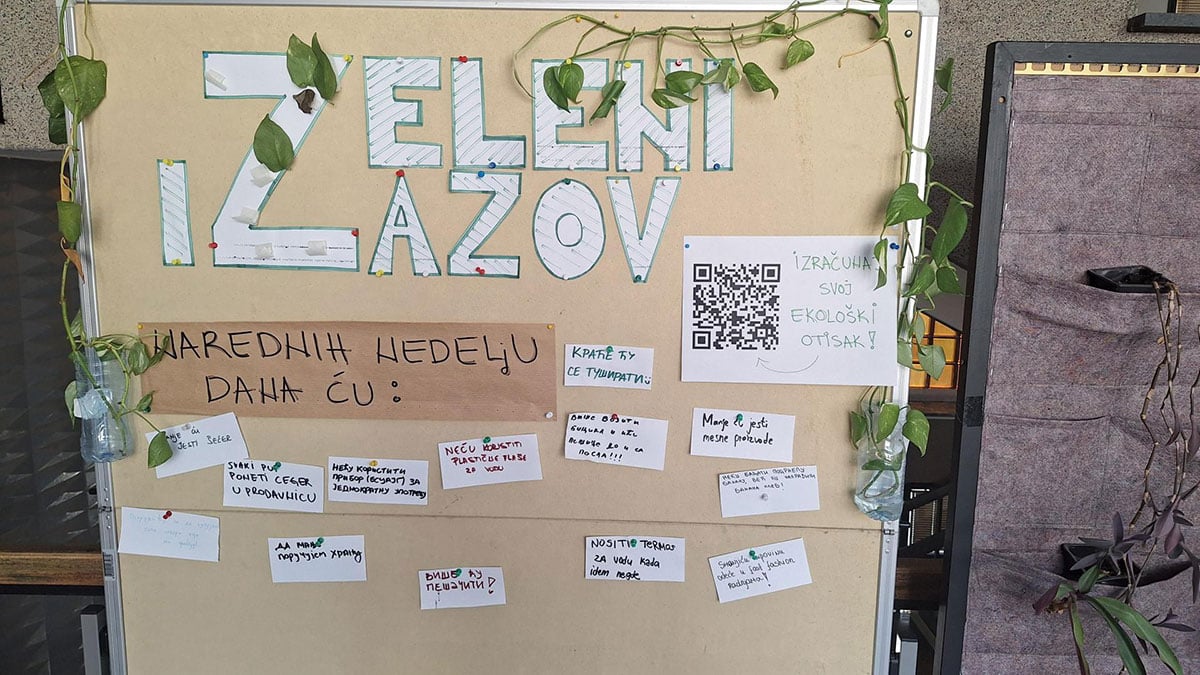 ZELENI
IZAZOV
IZRAČUNAJ
SVOJ
EKOLOŠKI
OTISAK!
NAREDNIH NEDELJU
DANA ĆU:
КРАЋЕ ЋУ
СЕ ТУШИРАТИ
ću
JESTI ŠEĆER
SVAKI PUT
PONETI CEGER
U PRODAVNICU
НЕЋУ КОРИСТИТИ
ПРИБОР (ЕСЦАЈГ) ЗА
ЈЕДНОКРАТНУ УПОТРЕБУ
NEĆU KORISTITI
PLASTIČNE FLAŠE
ZA VODU
ВИШЕ ВОЗИТИ
ПОСЛА!!!
Manje ću jesti
mesne proizvode
НЕЋУ БАЦАТИ ПОЦРНЕЛУ
БАНАНУ, ВЕЋ ЋУ НАПРАВИТИ
БАНАНА ХЛЕБ!
ДА МАЊЕ
поручујем ХРАНУ
ВИШЕ ЋУ
ПЕШАЧИТИ!
NOSITI TERMOS
ZA vodu KADA
idem negde
Smanjiću kupovinu
odeće u fast fashion
radnjama!